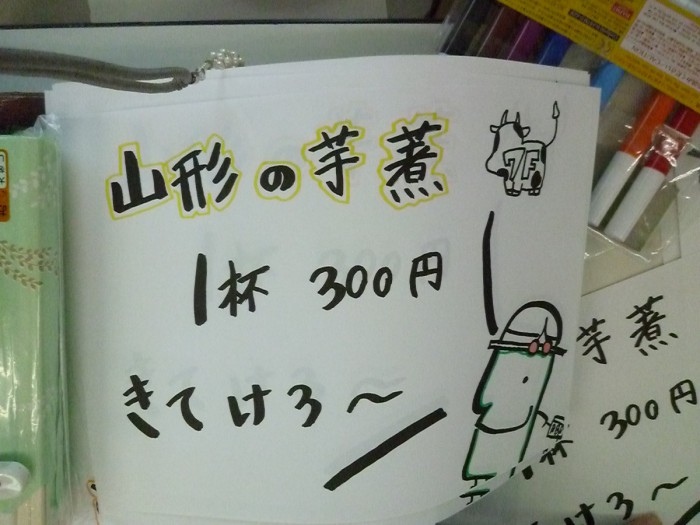 山形の芋煮
7F
1杯 300円
きてけろ～
芋煮
300円
けろ～